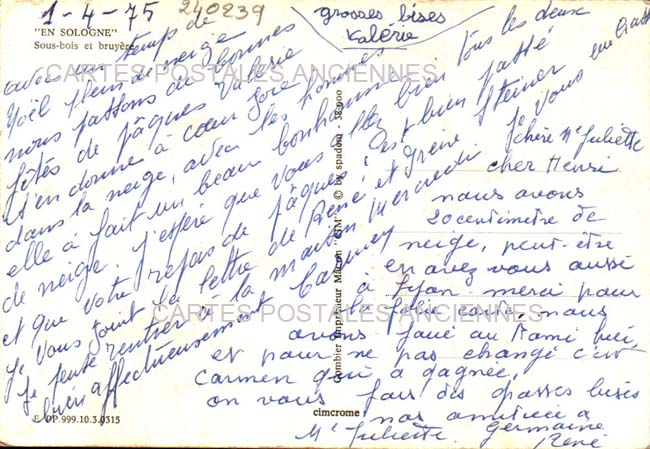 1-4-75
240239
"EN SOLOGNE"
Sous-bois et bruyère
grosses bises
Valérie
avec un temps de
Noël plein de neige
nous passons de bonnes
fêtes de pâques Valérie
s'en donne à coeur joie
dans la neige, avec les hommes
elle à fait un beau bonhomme
de neige. J'espère que vous allez bien tous les deux
et que votre repas de pâques c'est bien passé
Je vous joint la lettre de René et Irène Steiner
Je pense rentrer à la maison mercredi Je vous embrasse
bien affectueusement Carmen
chère Me Juliette
cher Henri
nous avons
20 centimètre de
neige, peut-être
en avez vous aussi
à Lyon merci pour
la carte, nous
avons joué au Rami hier,
et pour ne pas changé c'est
Carmen qui à gagnée,
on vous fais des grosses bises
nos amitiée a
Me Juliette. Germaine
René
CARTES POSTALES ANCIENNES
CARTES POSTALES ANCIENNES
Combier Imprimeur Mâcon "CIM" © by spadem 38.900
E DP.999.10.3.0315
cimcrome :